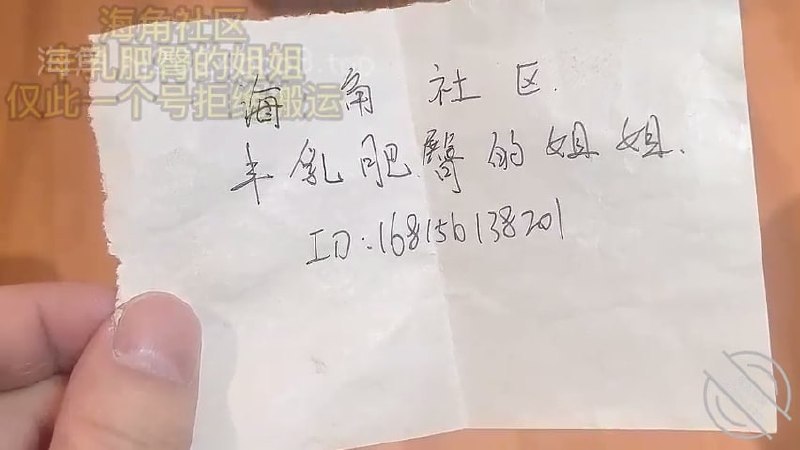 海角社区
仅此一个号拒绝搬运
海角社区.
丰乳肥臀的姐姐.
ID:168156138201